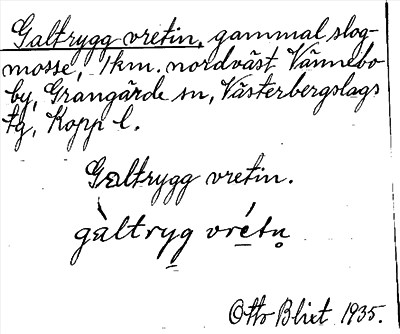 Galtrygg vretin, gammal slog-
mosse, 1 km. nordväst Vännebo
by, Grangärde sn, Västerbergslags
tg, Kopp l.
Galtrygg vretin.
gàltryg vrétn̥
Otto Blixt 1935.